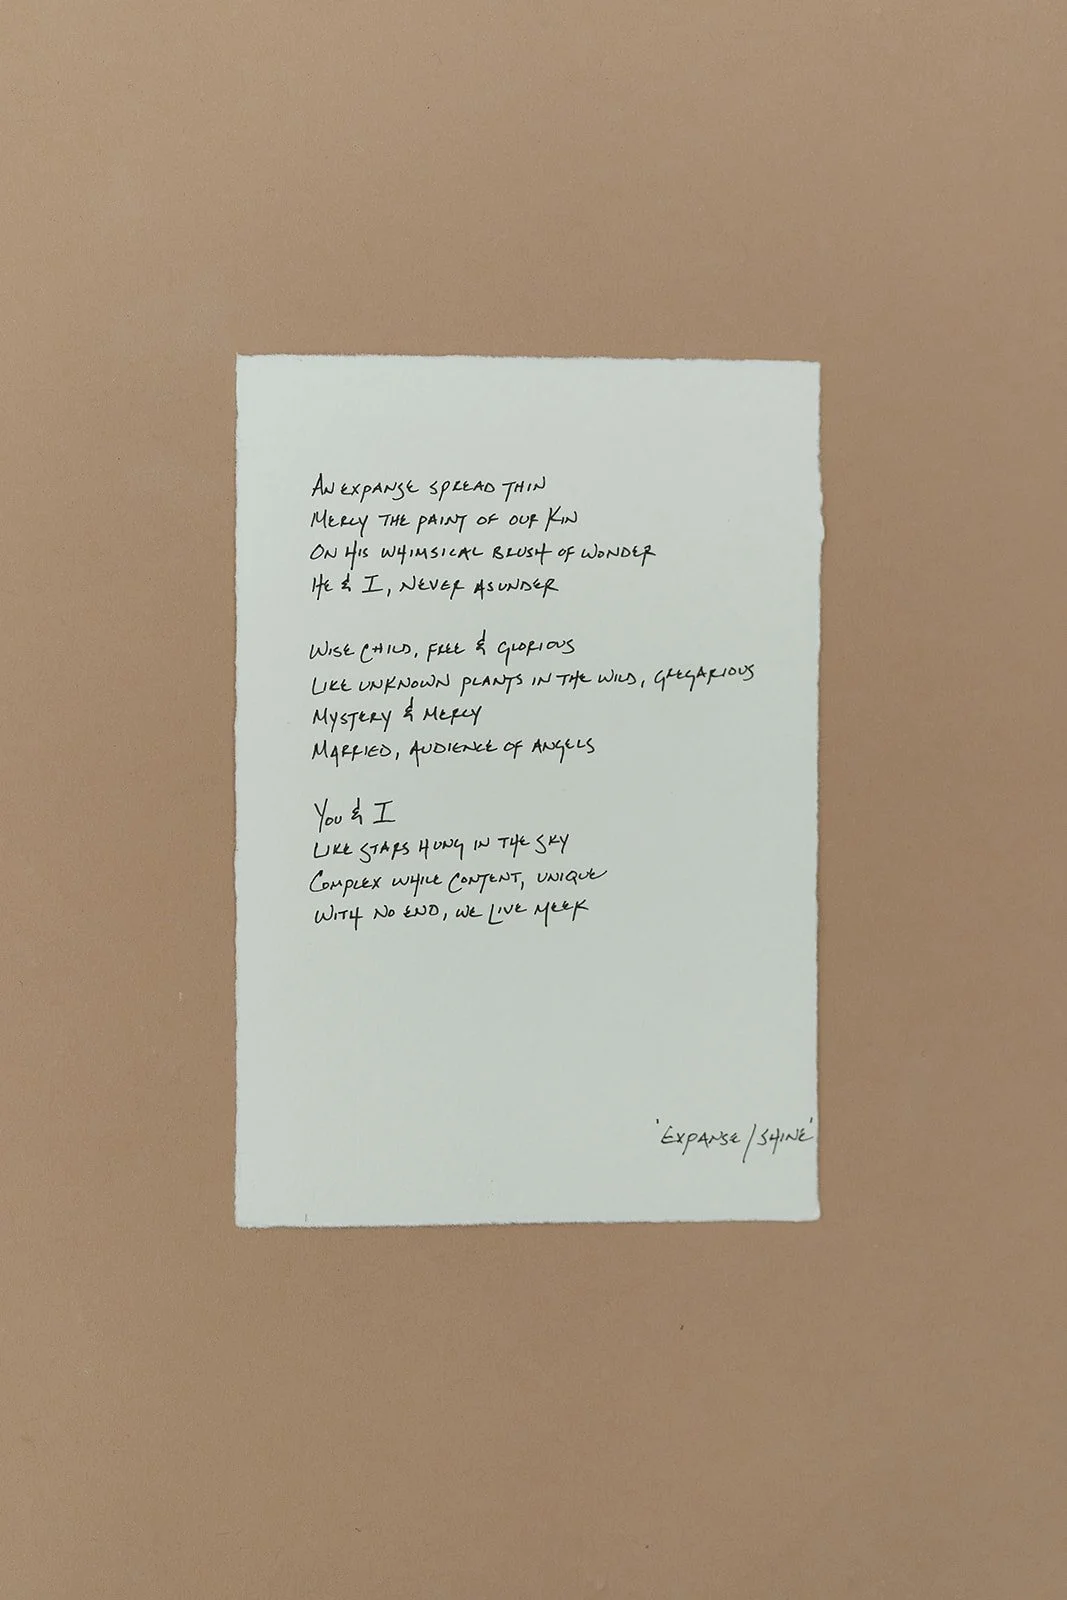 An expanse spread thin
Mercy the paint of our kin
On His whimsical brush of wonder
He & I, never asunder
Wise child, free & glorious
Like unknown plants in the wild, gregarious
Mystery & mercy
Married, audience of angels
You & I
Like stars hung in the sky
Complex while content, unique
With no end, we live meek
'Expanse/Shine'